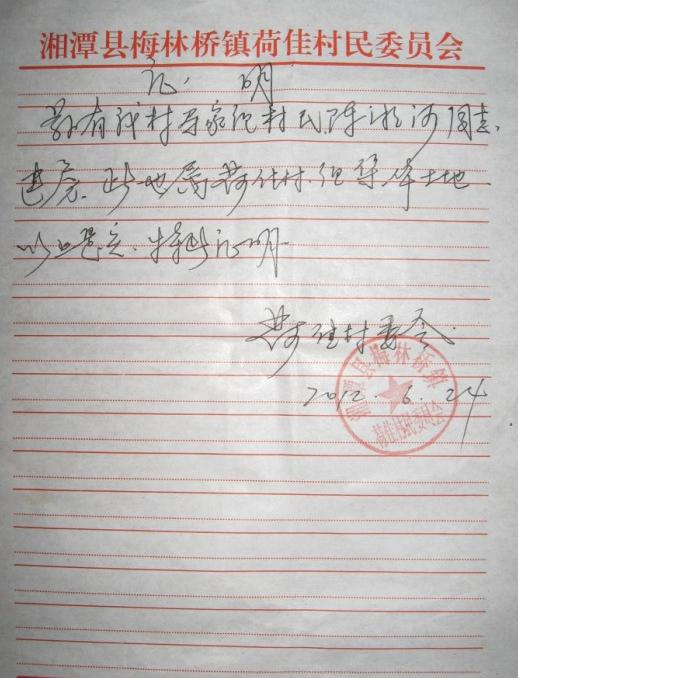 湘潭县梅林桥镇荷佳村民委员会
证 明
兹有我村易家组村民陈湘河同志
建房、此地属荷佳村、组集体土地
以上是实、特此证明
荷佳村委会
2012.6.24
湘潭县梅林桥镇
荷佳村民委员会